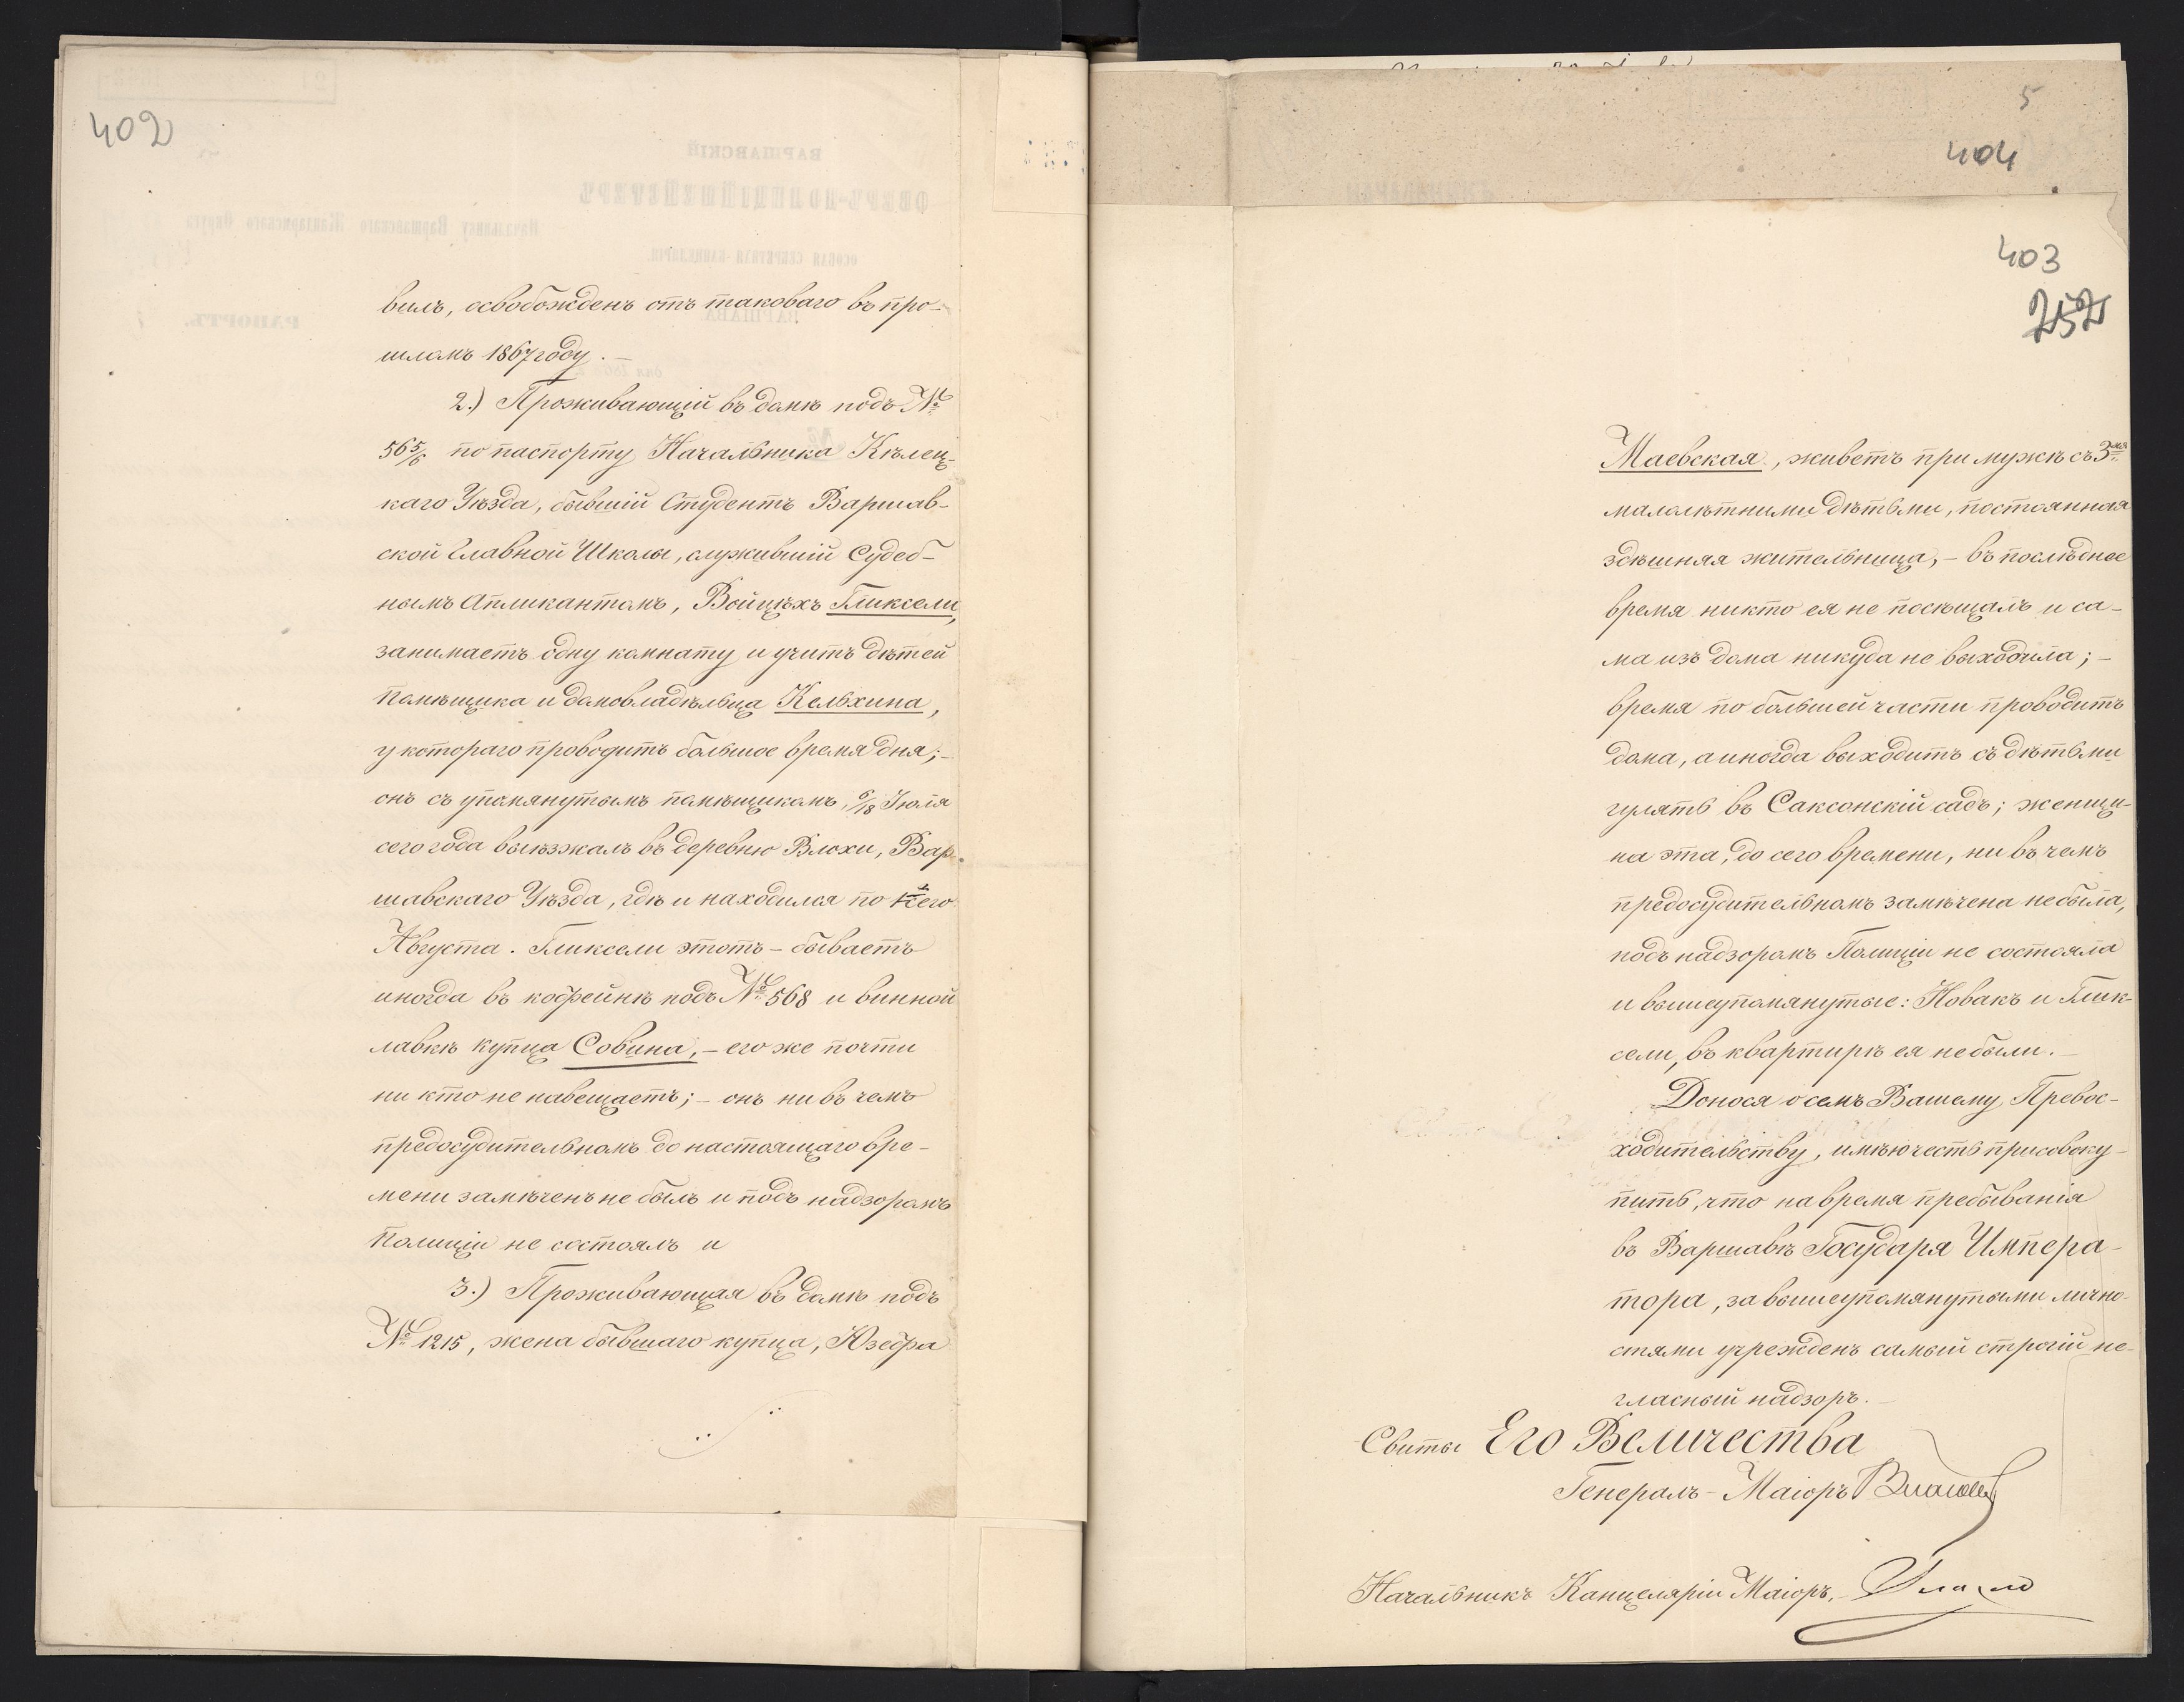 402
вилъ, освобожденъ отъ таковаго въ про-
шломъ 1867 году. —
2.) Проживающій въ домѣ подъ №
565/6 по паспорту Начальника Кѣлец-
каго Уѣзда, бывшій Студентъ Варшав-
ской Главной Школы, служившій Судеб-
нымъ Апликантомъ, Войцѣхъ Гликсели,
занимаетъ одну комнату и учитъ дѣтей
помѣщика и домовладѣльца Кельхина,
у котораго проводитъ большое время дня; –
онъ съ упомянутымъ помѣщикомъ, 6/18 Іюля
сего года выѣзжалъ въ деревню Влохи, Вар-
шавскаго Уѣзда, гдѣ и находился по
Августа. Гликсели этотъ – бываетъ
иногда въ кофейнѣ подъ № 568 и винной
лавкѣ купца Совина, – его же почти
ни кто не навещаетъ; – онъ ни въ чемъ
предосудительномъ до настоящаго вре-
мени замѣченъ не былъ и подъ надзоромъ
Полиціи не состоялъ и
3.) Проживающая въ домѣ подъ
№ 1215, жена бывшаго купца, Юзефа
5
404
403
252
Маевская, живетъ при мужѣ съ 3мя
малолѣтними дѣтьми, постоянная
здѣшняя жительница, – въ послѣднее
время никто ея не посѣщалъ и са-
ма изъ дома никуда не выходила; –
время по большей части проводитъ
дома, а иногда выходитъ съ дѣтьми
гулять въ Саксонскій садъ; женщи-
на эта, до сего времени, ни въ чемъ
предосудительномъ замѣчена не была,
подъ надзоромъ Полиціи не состояла
и вышеупомянутые: Новакъ и Глик-
сели, въ квартирѣ ея не были. –
Донося о семъ Вашему Превос-
ходительству, имѣю честь присовоку-
пить, что на время пребыванія
въ Варшавѣ Государя Импера-
тора, за вышеупомянутыми лично-
стями учрежденъ самый строгій не-
гласный надзоръ. –
Свиты Его Величества
Генералъ-Маіоръ Власовъ
Начальникъ Канцеляріи Маіоръ, –